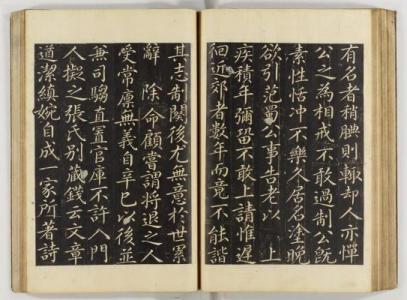 有名者稍腆則輙却人亦憚
公之為相戒不敢過制公既
素性恬冲不樂久居名塗晚
欲引范蜀公事告老以 上
疾積年彌留不敢上請惟遲
徊近郊者數年而竟不能諧
其志制闋後尤無意於世累
辭 除命顧嘗謂將退之人
受常廩無義自辛巳以後並
無司騶直置官庫不許入門
人擬之張氏別藏錢云文章
遒潔縝婉自成一家所著詩